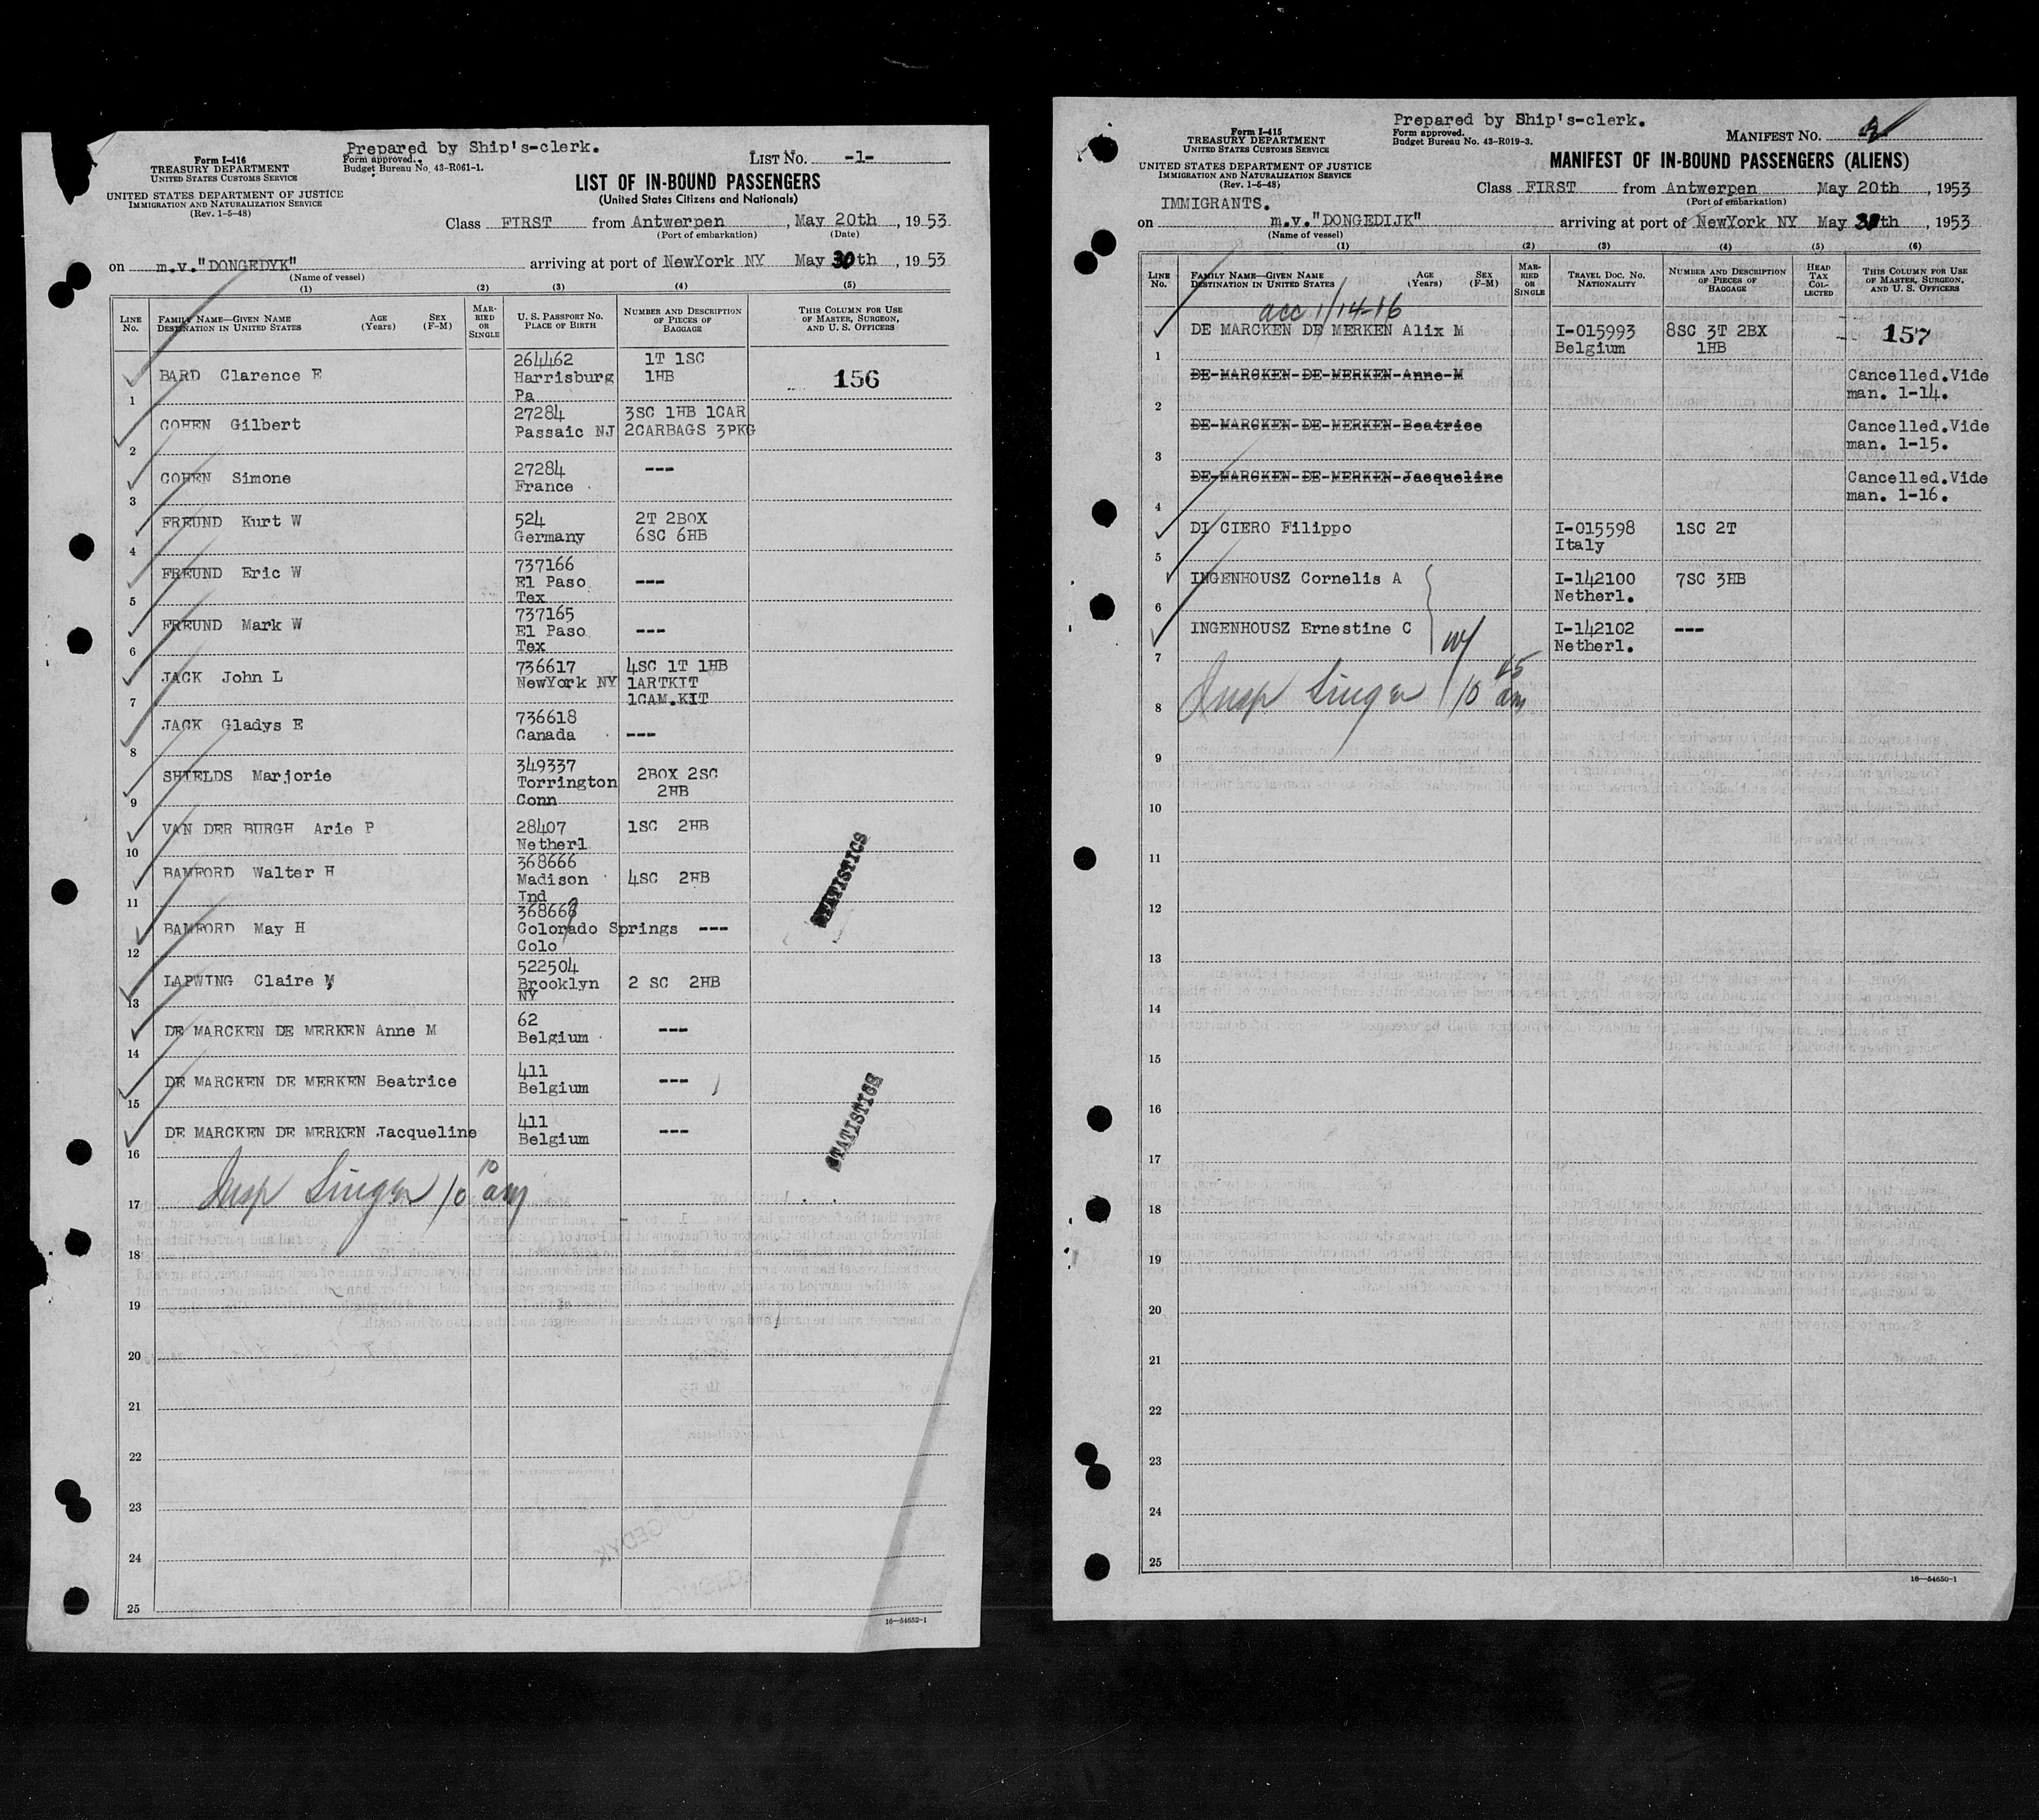 Prepared by Ship's-clerk.
Form I-416
TREASURY DEPARTMENT
UNITED STATES CUSTOMS SERVICE
Form approved.
Budget Bureau No. 43-R061-1.
LIST NO. -1-
UNITED STATES DEPARTMENT OF JUSTICE
IMMIGRATION AND NATURALIZATION SERVICE
(Rev. 1-5-48)
LIST OF IN-BOUND PASSENGERS
(United States Citizens and Nationals)
Class FIRST from Antwerpen, May 20th, 1953
(Port of embarkation) (Date)
on m.v."DONGEDYK" arriving at port of NewYork NY May 30th, 1953
(Name of vessel)
(1) (2) (3) (4) (5)
LINE No. FAMILY NAME—GIVEN NAME DESTINATION IN UNITED STATES AGE (Years) SEX (F-M) MARRIED OR SINGLE U. S. PASSPORT NO. PLACE OF BIRTH NUMBER AND DESCRIPTION OF PIECES OF BAGGAGE THIS COLUMN FOR USE OF MASTER, SURGEON, AND U. S. OFFICERS
1 BARD Clarence E 264462 Harrisburg Pa 1T 1SC 1HB 156
2 COHEN Gilbert 27284 Passaic NJ 3SC 1HB 1CAR 2CARBAGS 3PKG
3 COHEN Simone 27284 France ---
4 FREUND Kurt W 524 Germany 2T 2BOX 6SC 6HB
5 FREUND Eric W 737166 El Paso Tex ---
6 FREUND Mark W 737165 El Paso Tex ---
7 JACK John L 736617 NewYork NY 4SC 1T 1HB 1ARTKIT 1CAM.KIT
8 JACK Gladys E 736618 Canada ---
9 SHIELDS Marjorie 349337 Torrington Conn 2BOX 2SC 2HB
10 VAN DER BURGH Arie P 28407 Netherl 1SC 2HB
11 BAMFORD Walter H 368666 Madison Ind 4SC 2HB
12 BAMFORD May H Colorado Springs Colo ---
13 LAPWING Claire M 522504 Brooklyn NY 2 SC 2HB
14 DE MARCKEN DE MERKEN Anne M 62 Belgium ---
15 DE MARCKEN DE MERKEN Beatrice 411 Belgium ---
16 DE MARCKEN DE MERKEN Jacqueline 411 Belgium ---
STATISTICS
STATISTICS
Insp Singer 10 10 am
17
18
19
20
21
22
23
24
25
16—54652-1
Prepared by Ship's-clerk.
Form I-415
TREASURY DEPARTMENT
UNITED STATES CUSTOMS SERVICE
Form approved.
Budget Bureau No. 43-R019-3.
MANIFEST NO.
UNITED STATES DEPARTMENT OF JUSTICE
IMMIGRATION AND NATURALIZATION SERVICE
(Rev. 1-5-48)
MANIFEST OF IN-BOUND PASSENGERS (ALIENS)
IMMIGRANTS.
Class FIRST from Antwerpen May 20th, 1953
(Port of embarkation)
on m.v."DONGEDIJK" arriving at port of NewYork NY May 30th, 1953
(Name of vessel)
(1) (2) (3) (4) (5) (6)
LINE No. FAMILY NAME—GIVEN NAME DESTINATION IN UNITED STATES AGE (Years) SEX (F-M) MARRIED OR SINGLE TRAVEL DOC. NO. NATIONALITY NUMBER AND DESCRIPTION OF PIECES OF BAGGAGE HEAD TAX COLLECTED THIS COLUMN FOR USE OF MASTER, SURGEON, AND U. S. OFFICERS
acc 1/14-16
1 DE MARCKEN DE MERKEN Alix M I-015993 Belgium 8SC 3T 2BX 1HB 157
2 DE MARCKEN DE MERKEN Anne M Cancelled.Vide man. 1-14.
3 DE MARCKEN DE MERKEN Beatrice Cancelled.Vide man. 1-15.
4 DE MARCKEN DE MERKEN Jacqueline Cancelled.Vide man. 1-16.
5 DI CIERO Filippo I-015598 Italy 1SC 2T
6 INGENHOUSZ Cornelis A I-142100 Netherl. 7SC 3HB
7 INGENHOUSZ Ernestine C I-142102 Netherl. ---
8 Insp Singer 10 am
9
10
11
12
13
14
15
16
17
18
19
20
21
22
23
24
25
16—54650-1